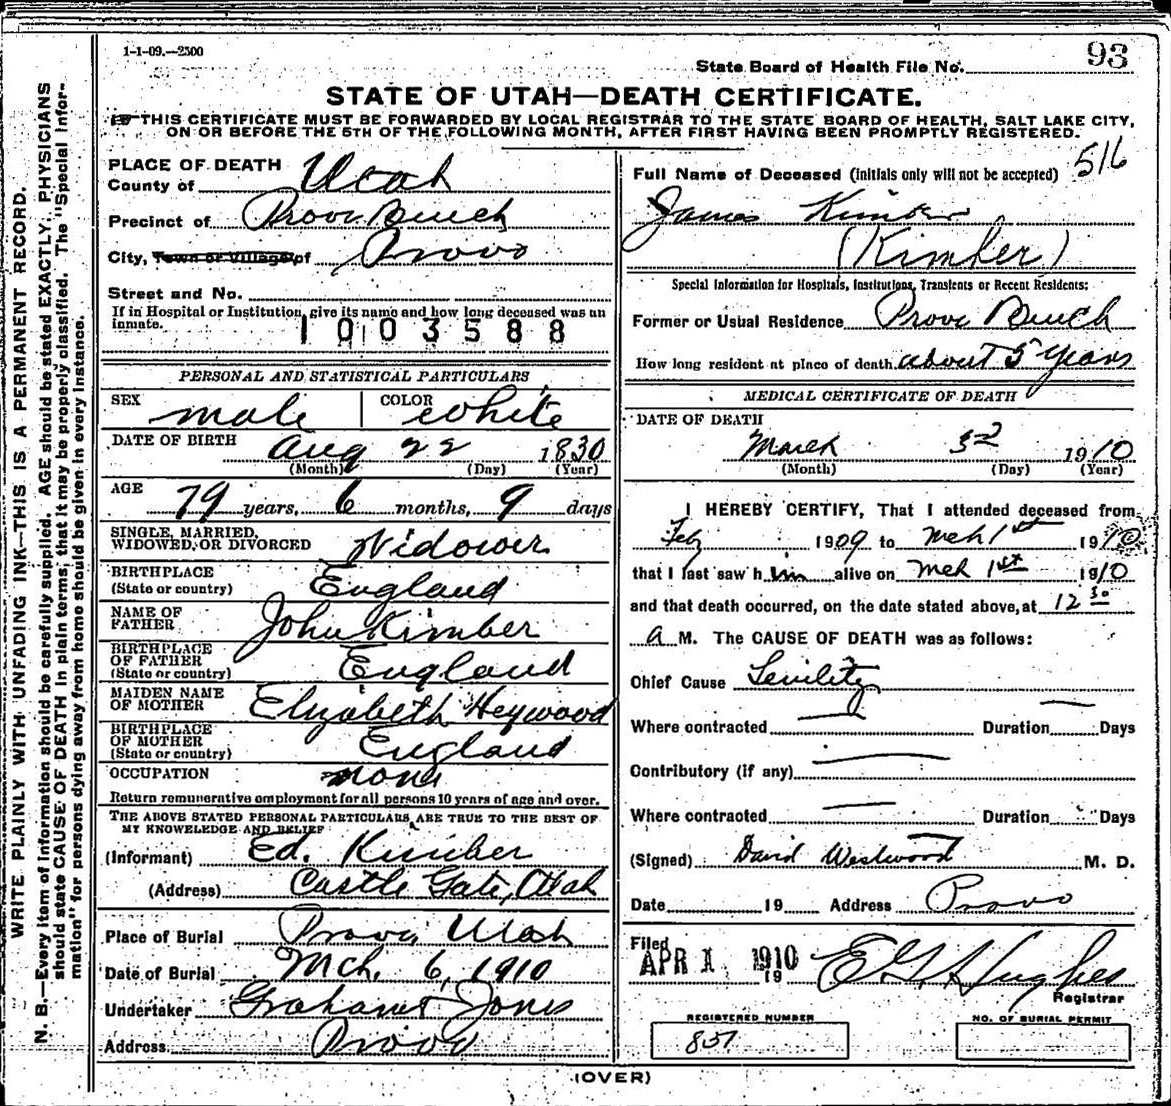 1-1-09.—2500
State Board of Health File No. 93
STATE OF UTAH—DEATH CERTIFICATE.
THIS CERTIFICATE MUST BE FORWARDED BY LOCAL REGISTRAR TO THE STATE BOARD OF HEALTH, SALT LAKE CITY,
ON OR BEFORE THE 5TH OF THE FOLLOWING MONTH, AFTER FIRST HAVING BEEN PROMPTLY REGISTERED.
WRITE PLAINLY WITH UNFADING INK—THIS IS A PERMANENT RECORD.
N. B.—Every item of information should be carefully supplied. AGE should be stated EXACTLY. PHYSICIANS
should state CAUSE OF DEATH in plain terms, that it may be properly classified. The "Special Infor-
mation" for persons dying away from home should be given in every instance.
PLACE OF DEATH
County of Utah
Precinct of Provo Bench
City, Town or Village of Provo
Street and No.
If in Hospital or Institution, give its name and how long deceased was an
inmate.
1003588
PERSONAL AND STATISTICAL PARTICULARS
SEX male COLOR white
DATE OF BIRTH Aug 22 1830
(Month) (Day) (Year)
AGE 79 years, 6 months, 9 days
SINGLE, MARRIED,
WIDOWED, OR DIVORCED Widower
BIRTHPLACE
(State or country) England
NAME OF
FATHER John Kimber
BIRTHPLACE
OF FATHER
(State or country) England
MAIDEN NAME
OF MOTHER Elizabeth Heywood
BIRTHPLACE
OF MOTHER
(State or country) England
OCCUPATION none
Return remunerative employment for all persons 10 years of age and over.
THE ABOVE STATED PERSONAL PARTICULARS ARE TRUE TO THE BEST OF
MY KNOWELEDGE AND BELIEF
(Informant) Ed. Kimber
(Address) Castle Gate, Utah
Place of Burial Provo, Utah
Date of Burial Mch. 6, 1910
Undertaker Graham & Jones
Address Provo
516
Full Name of Deceased (Initials only will not be accepted)
James Kimber
(Kimber)
Special Information for Hospitals, Institutions, Transients or Recent Residents:
Former or Usual Residence Provo Bench
How long resident at place of death about 5 years
MEDICAL CERTIFICATE OF DEATH
DATE OF DEATH
March 3rd 1910
(Month) (Day) (Year)
I HEREBY CERTIFY, That I attended deceased from
Feby 1909 to Mch 1st 1910
that I last saw h im alive on Mch 1st 1910
and that death occurred, on the date stated above, at 12 30
a M. The CAUSE OF DEATH was as follows:
Chief Cause Senility
Where contracted — Duration — Days
Contributory (if any) —
Where contracted — Duration Days
(Signed) David Westwood M. D.
Date 19 Address Provo
Filed
APR 1 1910
19
E G Hughes
Registrar
REGISTERED NUMBER
857
NO. OF BURIAL PERMIT
(OVER)